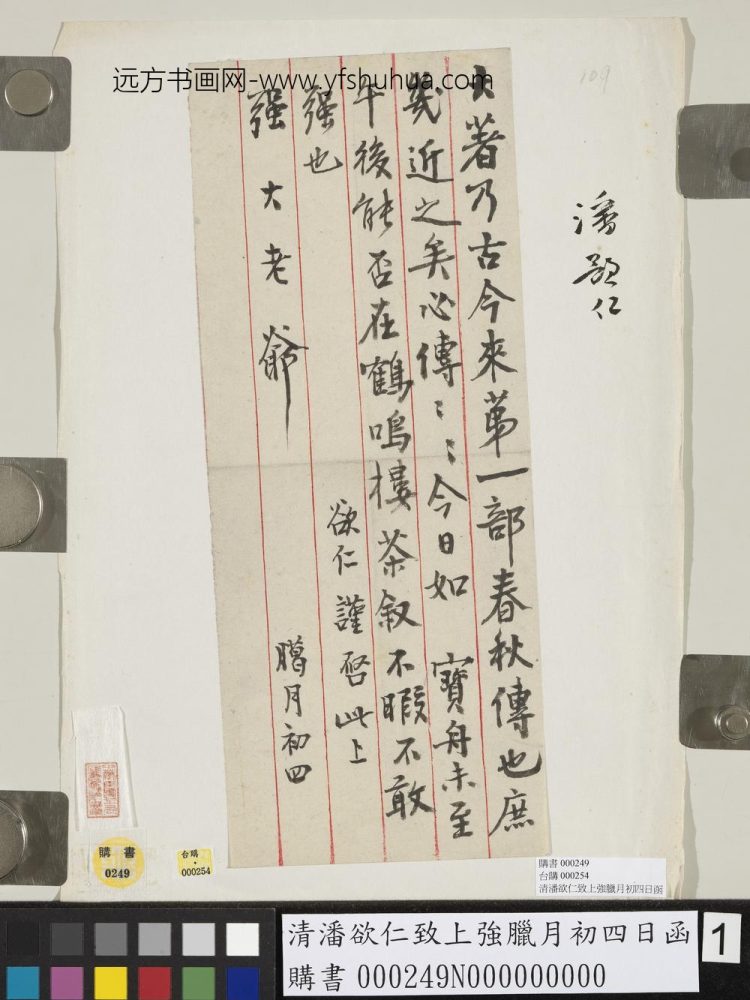 远方书画网-www.yfshuhua.com
109
潘欲仁
大著乃古今來第一部春秋傳也庶
幾近之矣必傳〻〻今日如 寶舟未至
午後能否在鶴鳴樓茶叙不暇不敢
强也
欲仁謹啓此上
强大老爺
臈月初四
購書
0249
台購
000254
購書 000249
台購 000254
清潘欲仁致上強臘月初四日函
清潘欲仁致上強臘月初四日函
購書 000249N000000000
1